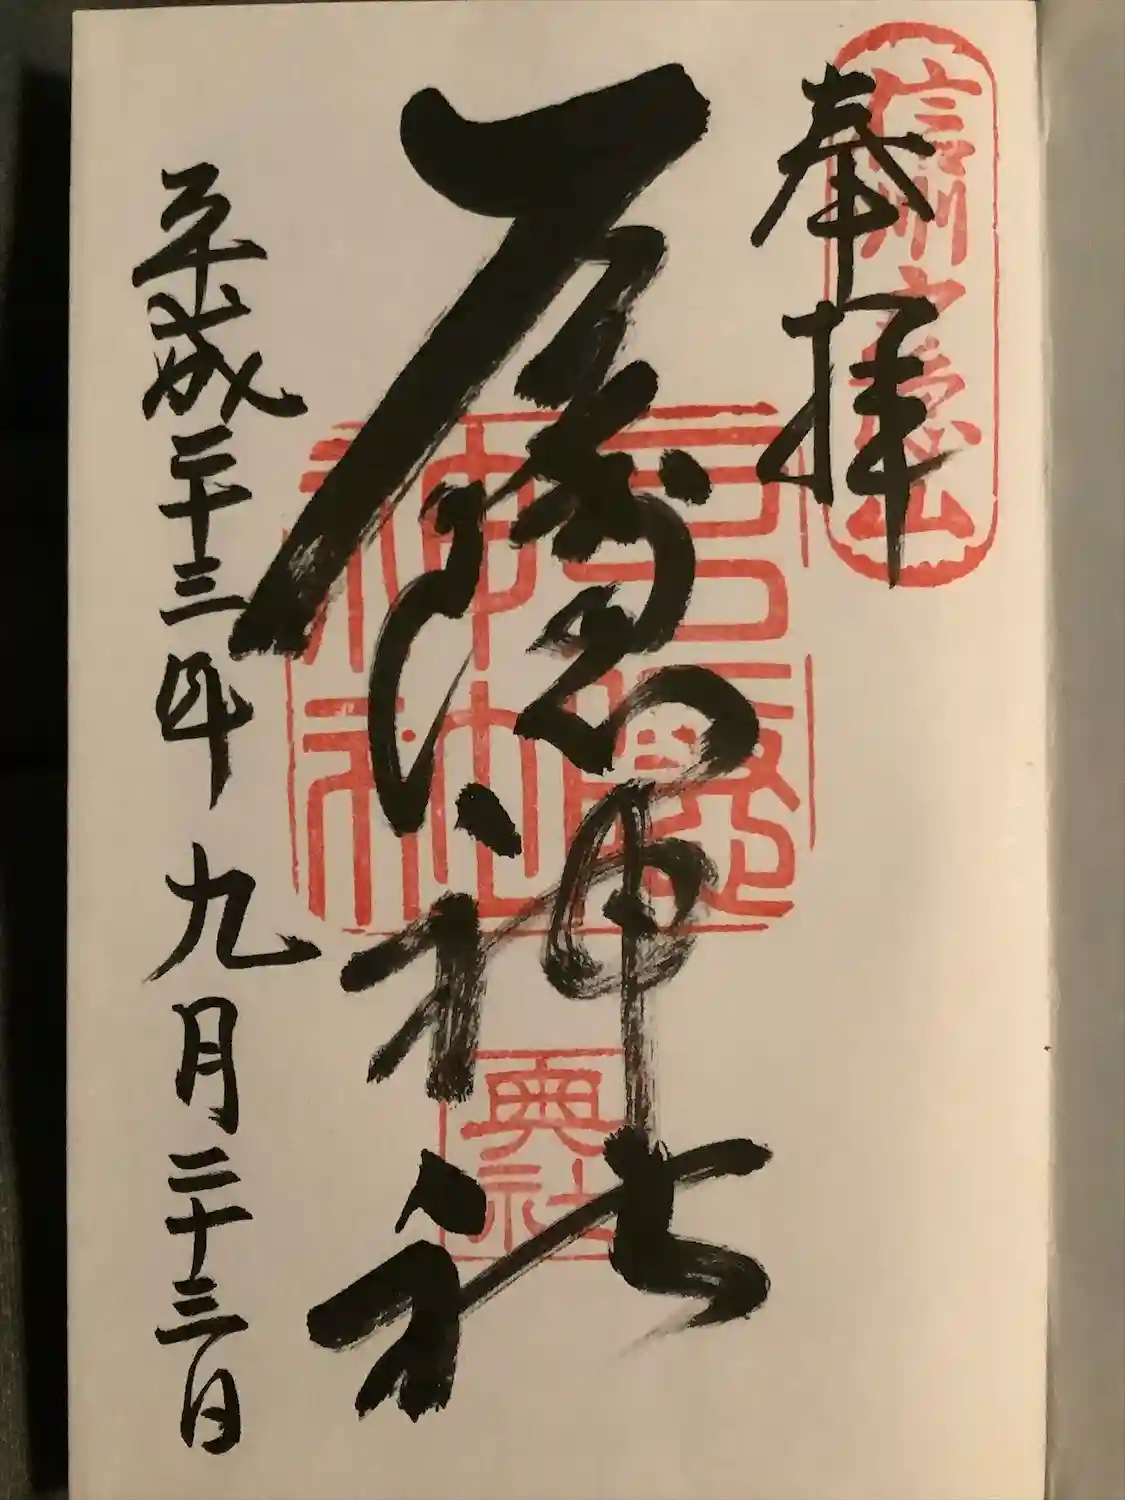 奉拝
信州戸隠山
戸隠神社
戸隠神社
奥社
平成二十三年九月二十三日